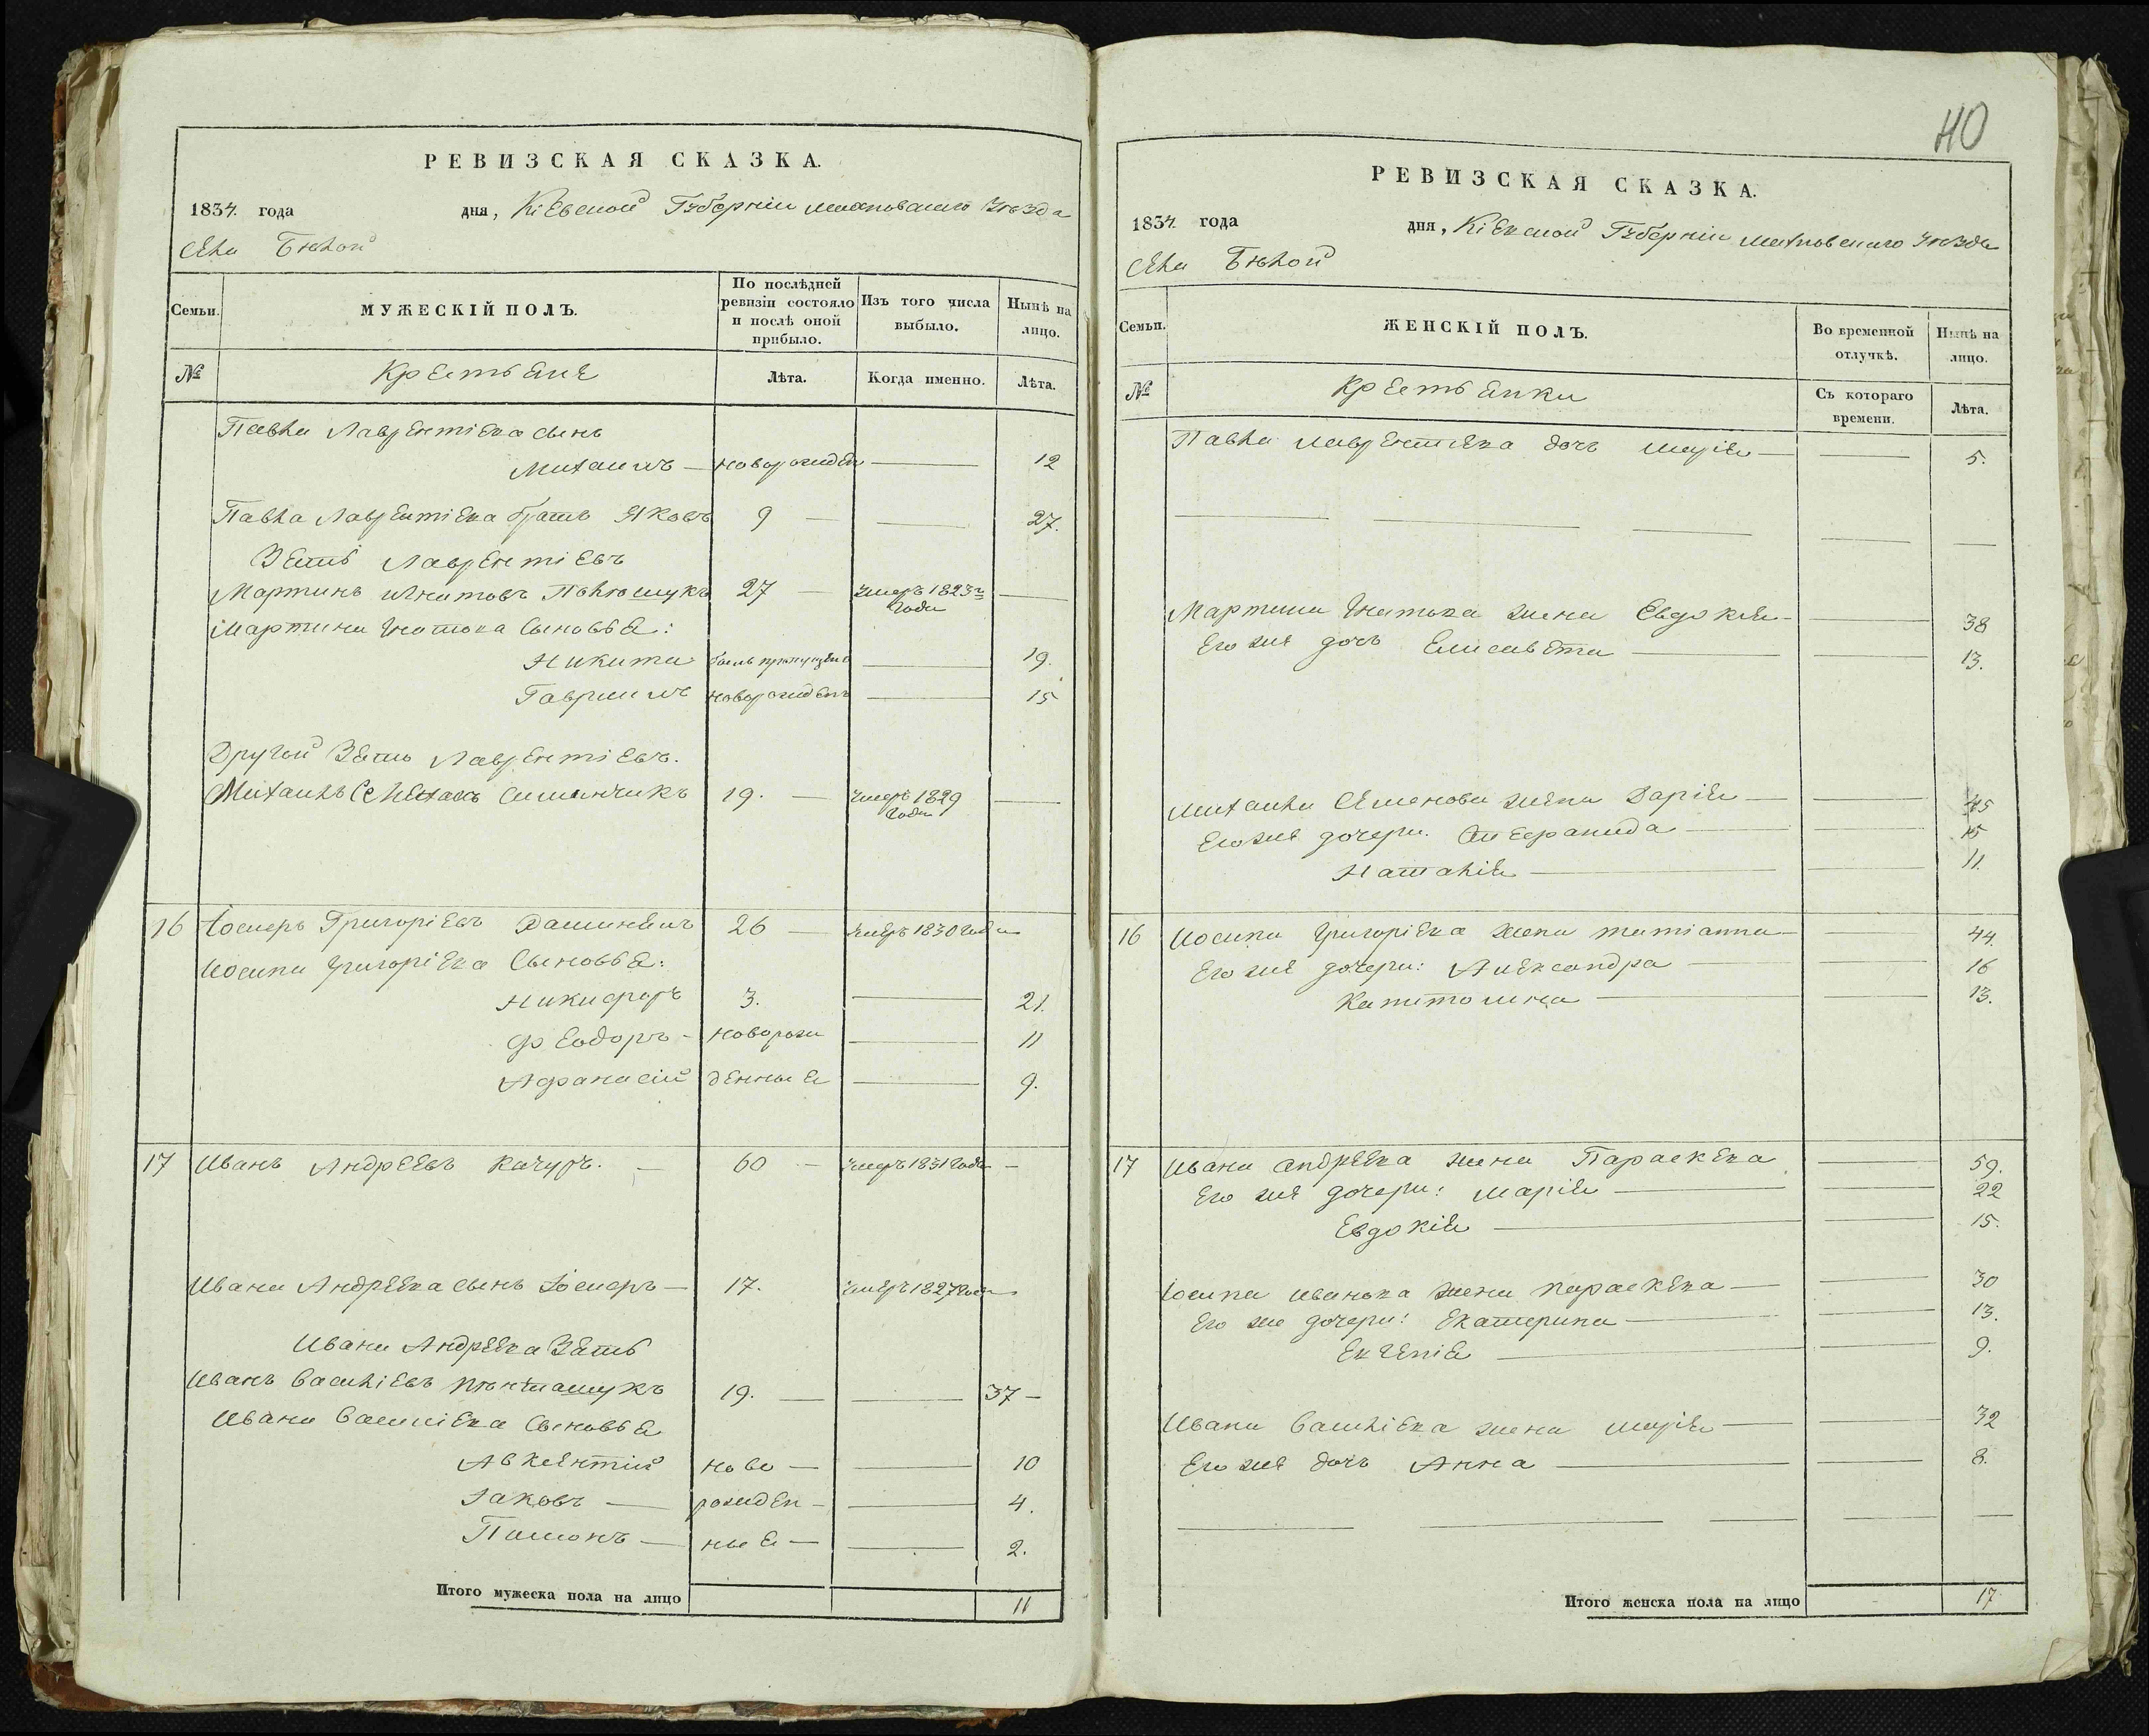 РЕВИЗСКАЯ СКАЗКА.
1834. года дня, Кіевской Губерніи Уѣзда
Села
Семьи. МУЖЕСКІЙ ПОЛЪ. По послѣдней ревизіи состояло и послѣ оной прибыло. Изъ того числа выбыло. Нынѣ на лицо.
№ Крестьяне Лѣта. Когда именно. Лѣта.
Павла Лаврентіева сынъ
Михаилъ — новорожден — 12
Павла Лаврентіева братъ Яковъ 9 — — 27.
Зять Лаврентіевъ
Мартинъ Игнатовъ 27 — умеръ 1823го года —
Мартина Игнатова сыновья:
Никита былъ пропущенъ — 19.
Гавриилъ новорожденъ — 15
Другой Зять Лаврентіевъ.
Михаилъ 19. — умеръ 1829 года —
16 Іосифъ Григоріевъ 26 — умеръ 1830 года
Иосипа Григоріева Сыновья:
Никифоръ 3. — 21.
Феодоръ — новорож — 11
Афанасій денные — 9.
17 Иванъ Андреевъ Качуръ. — 60 — умеръ 1831 года —
Ивана Андреева сынъ Іосифъ — 17. умеръ 1827 года
Ивана Андреева Зять
Иванъ Василіевъ 19. — — 37 —
Ивана Василіева Сыновья
Авксентій ново — — 10
Іаковъ — рожден — — 4.
Пимонъ — ные — — 2.
Итого мужеска пола на лицо 11
40
РЕВИЗСКАЯ СКАЗКА.
1834 года дня, Кіевской Губерніи Уѣзда
Села
Семьи. ЖЕНСКІЙ ПОЛЪ. Во временной отлучкѣ. Нынѣ на лицо.
№ Крестьянки Съ котораго времени. Лѣта.
Павла Лаврентіева дочь Марія — — 5.
Мартина Игнатова жена Евдокія — — 38
Его же дочь Елисавета — — 13.
Михаила Семенова жена Дарія — — 45
Его же дочери. — — 15
Наталія — — 11.
16 Иосипа Григоріева жена Татіанна — — 44.
Его же дочери: Александра — — 16
Капитолина — — 13.
17 Ивана Андреева жена Параскева — 59.
Его же дочери: Марія — — 22
Евдокія — — 15.
Іосипа Иванова жена Параскева — — 30
Его же дочери: Екатерина — — 13.
Евгенія — — 9.
Ивана Василіева жена Марія — — 32
Его же дочь Анна — — 8.
Итого женска пола на лицо 17